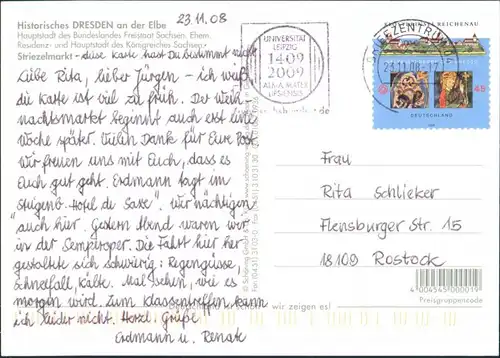 Historisches DRESDEN an der Elbe
23.11.08
Hauptstadt des Bundeslandes Freistaat Sachsen. Ehem.
Residenz- und Hauptstadt des Königreiches Sachsen.
Striezelmarkt - diese Karte hast Du bestimmt nicht
Liebe Rita, lieber Jürgen - ich weiß
die Karte ist viel zu früh. Der Weih-
nachtsmarkt beginnt auch erst eine
Woche später. Vielen Dank für Eure Post
wir freuen uns mit Euch, dass es
Euch gut geht. Erdmann tagt im
Steigenb.-Hotel de Saxe. Wir nächtigen
auch hier. Gestern Abend waren wir
in der Semperoper. Die Fahrt hier her
gestaltete sich schwierig: Regengüsse,
Schneefall, Kälte. Mal sehen, wie es
morgen wird. Zum Klassentreffen kann
ich leider nicht. Herzl. Grüße
Erdmann u. Renate
UNIVERSITÄT
LEIPZIG
1409
2009
ALMA MATER
LIPSIENSIS
BRIEFZENTRUM
23.11.08-17
REICHENAU
45
DEUTSCHLAND
Frau
Rita Schlieker
Flensburger Str. 15
18109 Rostock
4004545000019
Preisgruppencode
wir zeigen es!